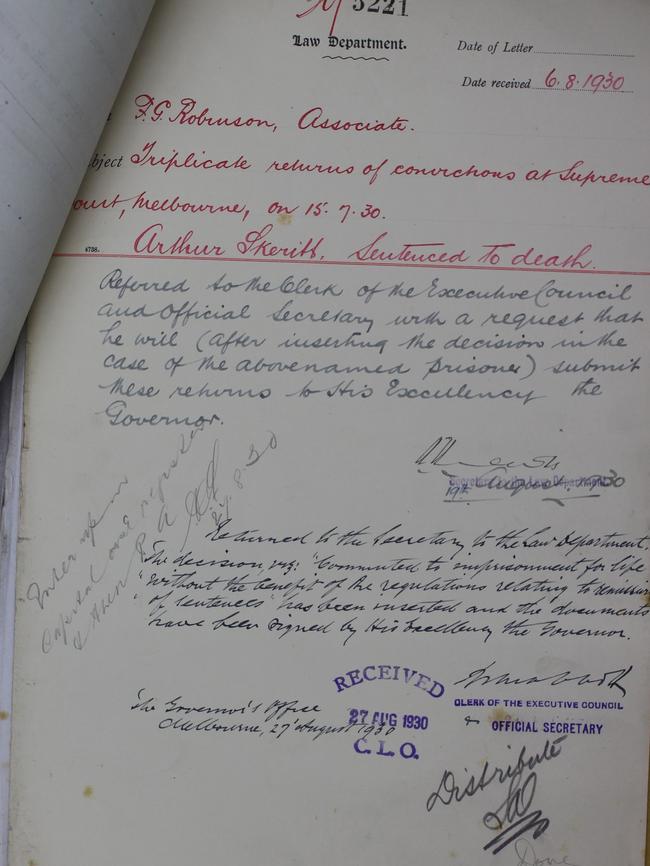 5221
Law Department.
Date of Letter
Date received 6.8.1930
F.G. Robinson, Associate.
bject Triplicate returns of convictions at Supreme
ourt, Melbourne, on 15.7.30.
Arthur Skeritt, Sentenced to death.
Referred to the Clerk of the Executive Council
and Official Secretary with a request that
he will (after inserting the decision in the
case of the abovenamed prisoner) submit
these returns to His Excellency the
Governor.
Secretary to the Law Department
19th August, 1930
Capital case register
& then P.A.
.8.30
Returned to the Secretary to the Law Department.
The decision, viz: "Commuted to imprisonment for life
"without the benefit of the regulations relating to remission
"of sentences" has been inserted and the documents
have been signed by His Excellency the Governor.
CLERK OF THE EXECUTIVE COUNCIL
& OFFICIAL SECRETARY
The Governor's Office
Melbourne, 27 August 1930
RECEIVED
27 AUG 1930
C.L.O.
Distribute
Done